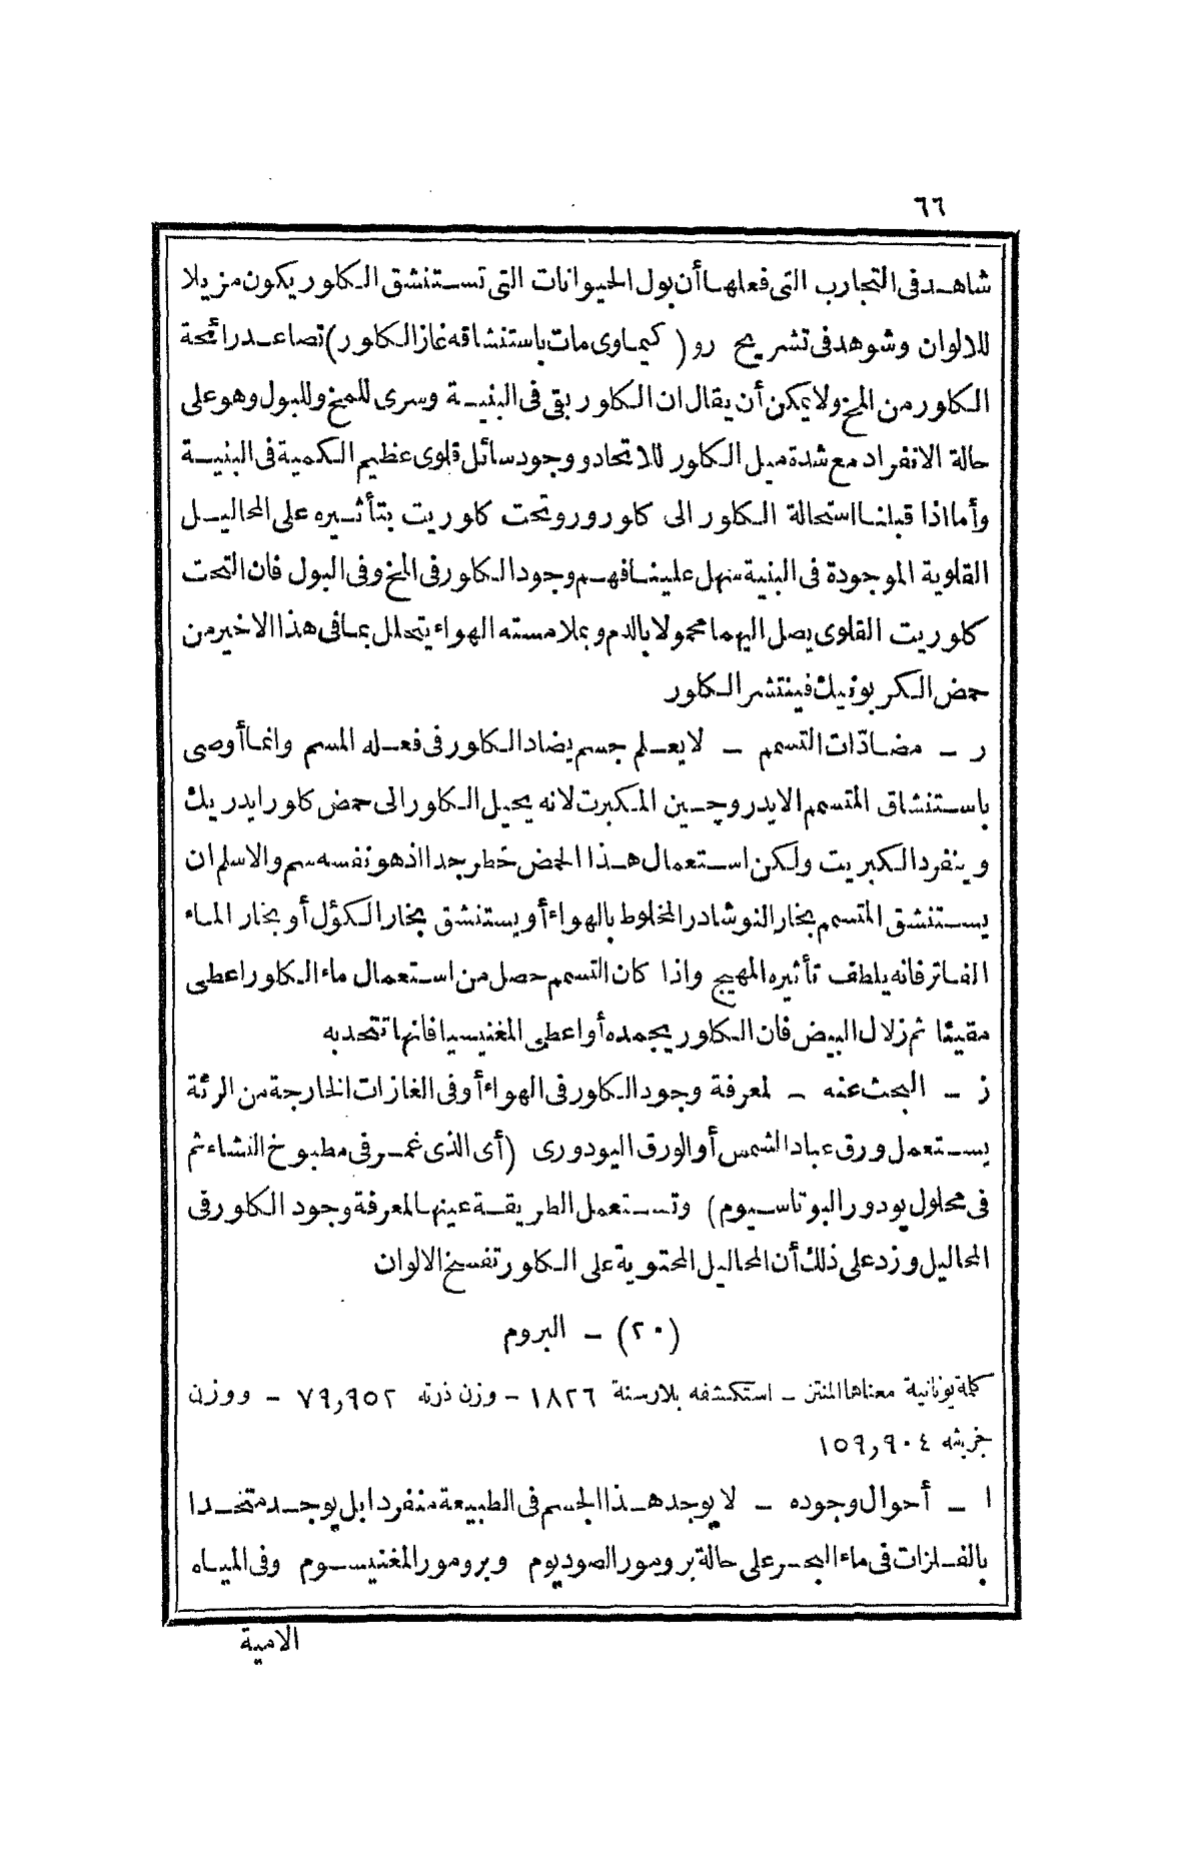 ٦٦
شاهد فى التجارب التى فعلها أن بول الحيوانات التى تستنشق الكلور يكون مزيلا
للالوان وشوهد فى تشريح رو (كيماوى مات باستنشاقه غاز الكلور) تصاعد رائحة
الكلور من المخ ولا يمكن أن يقال ان الكلور بقى فى البنية وسرى للمخ وللبول وهو على
حالة الانفراد مع شدة ميل الكلور للاتحاد ووجود سائل قلوى عظيم الكمية فى البنية
وأما اذا قبلنا استحالة الكلور الى كلورور وتحت كلوريت بتأثيره على المحاليل
القلوية الموجودة فى البنية سهل علينا فهم وجود الكلور فى المخ وفى البول فان التحت
كلوريت القلوى يصل اليهما محمولا بالدم وبملامسته الهواء يتحلل بما فى هذا الاخير من
حمض الكربونيك فينتشر الكلور
ر – مضادّات التسمم – لا يعلم جسم يضاد الكلور فى فعله المسم وانما أوصى
باستنشاق المتسمم الايدروچين المكبرت لانه يحيل الكلور الى حمض كلورايدريك
وينفرد الكبريت ولكن استعمال هذا الحمض خطر جدا اذ هو نفسه سم والاسلم ان
يستنشق المتسمم بخار النوشادر المخلوط بالهواء أو يستنشق بخار الكؤل أو بخار الماء
الفاتر فانه يلطف تأثيره المهيج واذا كان التسمم حصل من استعمال ماء الكلور اعطى
مقيئا ثم زلال البيض فان الكلور يجمده أو اعطى المغنيسيا فانها تتحد به
ز – البحث عنه – لمعرفة وجود الكلور فى الهواء أو فى الغازات الخارجة من الرئة
يستعمل ورق عباد الشمس أو الورق اليودورى (أى الذى غمر فى مطبوخ النشاء ثم
فى محلول يودور البوتاسيوم) وتستعمل الطريقة عينها لمعرفة وجود الكلور فى
المحاليل وزد على ذلك أن المحاليل المحتوية على الكلور تفسخ الالوان
(٢٠) – البروم
كلمة يونانية معناها المنتن – استكشفه بلار سنة ١٨٢٦ – وزن ذرته ٧٩,٩٥٢ – ووزن
جزيئه ١٥٩,٩٠٤
ا – أحوال وجوده – لا يوجد هذا الجسم فى الطبيعة منفردا بل يوجد متحدا
بالفلزات فى ماء البحر على حالة برومور الصوديوم وبرومور المغنيسيوم وفى المياه
الامية